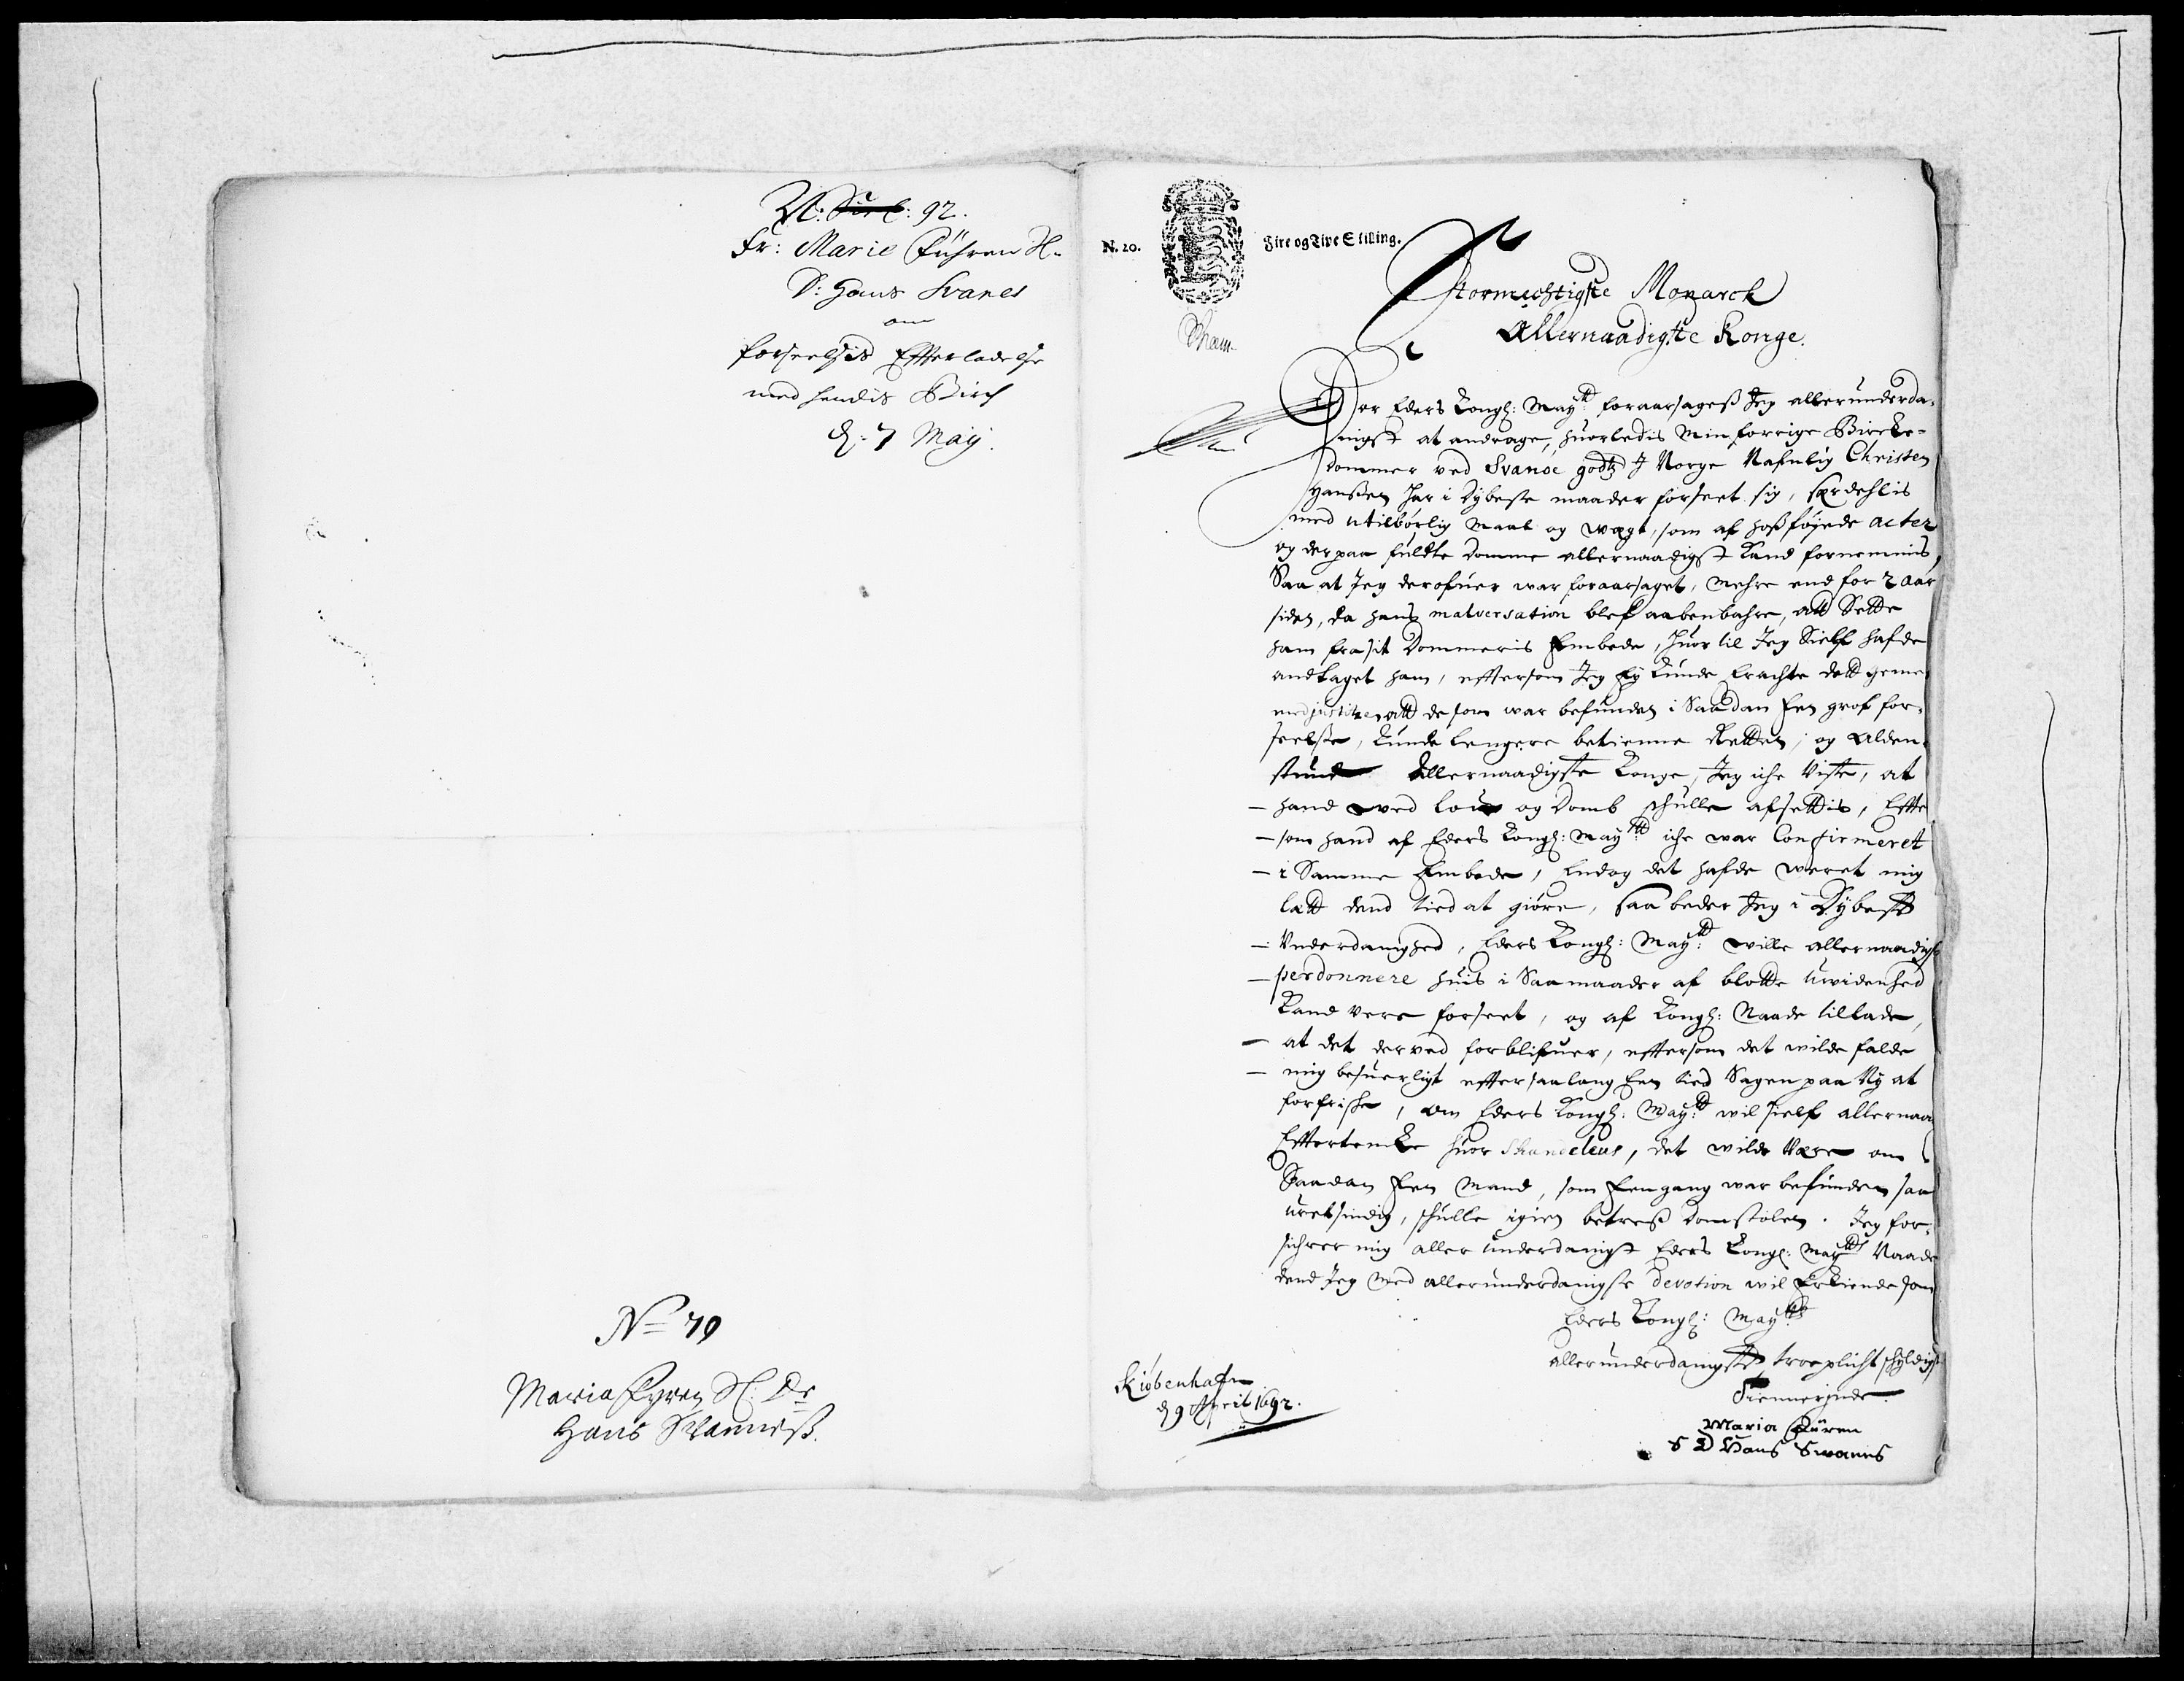 92.
Fr: Marie Führen S.
D: Hans Svanes
om
forseelsis Efterladelse
med hendis Birch
d: 7 Maÿ.
No 79
Maria Fyren S. Dr
Hans Svanneß.
N. 20.
Fire og Tive Skilling.
Stormechtigste Monarch
Allernaadigste Konge.
For Eders Kongl: Maytt: foraarsageß Jeg allerunderda-
nigst at andrage, huorledis Min forrige Bircke-
dommer ved Svanøe godtz J Norge Nafnlig Christen
Hanßen har i Dybeste maader forseet sig, særdehlis
med utilbørlig Maal og wegt, som af hoßføyede acter
og der paa fuldte Domme allernaadigst kand fornemmis,
Saa at Jeg derofuer war foraarsaget, Mehre end for 2 aar
siden, da hans malversation blef aabenbahre, att Sette
ham fra sit Dommeris Embede, huor til Jeg Sielf hafde
andtaget ham, eftersom Jeg Ey kunde Erachte dett
med justitzen, att de som war befunden i Saadan Een grof for-
seelße, kunde lengere betienne Retten, og Alden-
stund Allernaadigste Konge, Jeg iche Viste, at
hand wed low og Domb schulle afsettis, Effter
som hand af Eders Kongl: Maytt: iche war Confirmeret
i Samme Embede, Endog det hafde weret mig
lætt dend tied at giøre, saa beder Jeg i Dybeste
Underdanighed, Eders Kongl: Maytt: wille allernaadigst
perdonnere huis i Saamaader af blotte Uwidenhed
Kand vere forseet, og af Kongl: Naade tillade,
at det derved forblifuer, eftersom det wilde falde
mig besuerligt effter saa lang Een tied Sagen paa Ny at
forfriske, om Eders Kongl: Maytt: wil sielf allernaa
Efftertencke huor Skandeleus, det wilde Være om
Saadan Een Mand, som Een gang war befunden saa
uretsindig, schulle igien betreß Domstolen. Jeg for-
sichrer mig aller underdanigst Eders Kongl: Maytts Naade
dend Jeg Med allerunderdanigste Devotion wil Erkiende som
Eders Kongl: Maytts
allerunderdanigste troepligt schyldigst
Tiennerinde
Maria Füren
S D Hans Swanes
Kiøbenhafn
d 9 April 1692.